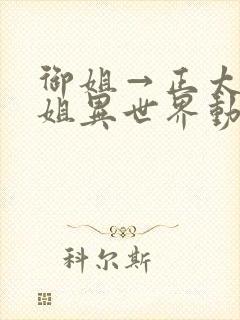 御姐→正太
姐异世界勤
科尔斯